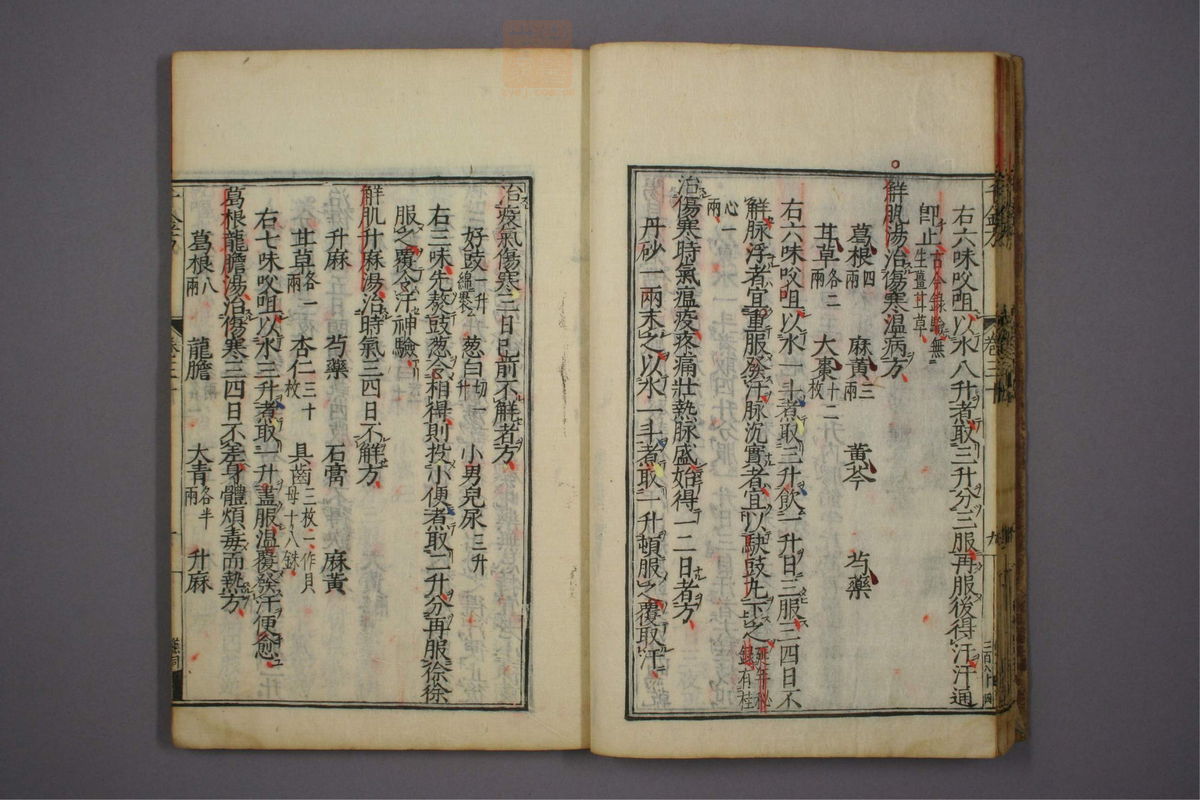 右六味㕮咀以水八升煮取三升分三服再服後得汗汗通
即止古今錄驗無生薑甘草
解肌湯治傷寒溫病方
葛根四兩 麻黃三兩 黃芩 芍藥
甘草各二兩 大棗十二枚
右六味㕮咀以水一斗煮取三升飲一升日三服三四日不
解脉浮者宜重服發汗脉沉實者宜以駃豉丸下之延年秘錄有桂
心一兩
治傷寒時氣瘟疫疼痛壯熱脉盛始得一二日者方
丹砂一兩末之以水一斗煮取一升頓服之覆取汗
治疫氣傷寒三日已前不解者方
好豉一升綿裹 葱白切一升 小男兒尿三升
右三味先熬豉葱令相得則投小便煮取二升分再服徐徐
服之覆令汗神驗
解肌升麻湯治時氣三四日不解方
升麻 芍藥 石膏 麻黃
甘草各一兩 杏仁三十枚 具齒三枚一作貝母十八銖
右七味㕮咀以水三升煮取一升盡服溫覆發汗便愈
葛根龍膽湯治傷寒三四日不差身體煩毒而熱方
葛根八兩 龍膽 大青各半兩 升麻